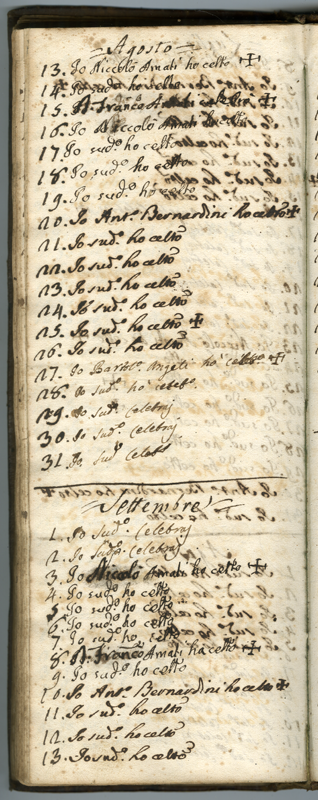 = Agosto =
13. Io Niccolò Amati ho celto ✠
14. Io sudo. ho celto
15. D. Franco Amati celto ✠
16. Io Niccolò Amati ho celto
17. Io sudo. ho celto
18. Io sudo. ho celto
19. Io sudo. ho celto
20. Io Anto. Bernardini ho celto ✠
21. Io sudo. ho celto
22. Io sudo. ho celto
23. Io sudo. ho celto
24. Io sudo. ho celto
25. Io sudo. ho celto ✠
26. Io sudo. ho celto
27. Io Bartolo. Angeli ho celto ✠
28. Io sudo. ho celeto.
29. Io sudo. Celebraj
30. Io sudo. Celebraj
31. Io sudo.
= Settembre =
1. Io Sudo. Celebraj
2. Io Sudo. Celebraj
3. Io Nicolò Amati ho celto ✠
4. Io sudo. ho celto
5. Io sudo. ho celto
6. Io sudo. ho celto
7. Io sudo. ho celto
8. D. Franco Amati ha celto ✠
9. Io sudo. ho celto
10. Io Anto. Bernardini ho celto ✠
11. Io sudo. ho celto
12. Io sudo. ho celto
13. Io sudo. ho celto